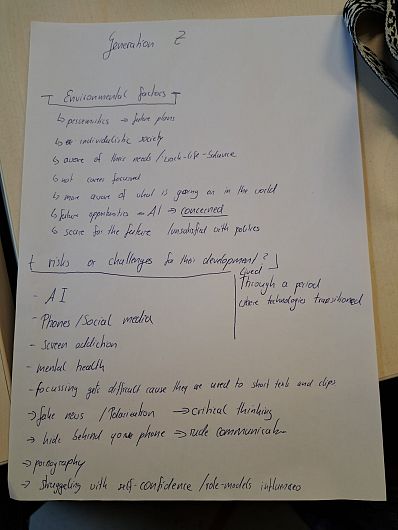 Generation Z
Environmental factors
↳ pessimistics → future plans
↳ individualistic society
↳ aware of their needs / work-life-balance
↳ not career focussed
↳ more aware of what is going on in the world
↳ future opportunities → AI → concerned
↳ scare for the future / unsatisfied with politics
risks or challenges for their development?
lived
Through a period
where technologies transitioned
- AI
- Phones / Social media
- screen addiction
- mental health
- focussing gets difficult cause they are used to short texts and clips
→ fake news / Polarisation → critical thinking
→ hide behind your phone → rude communication
→ pornography
→ struggeling with self-confidence / role-models influences